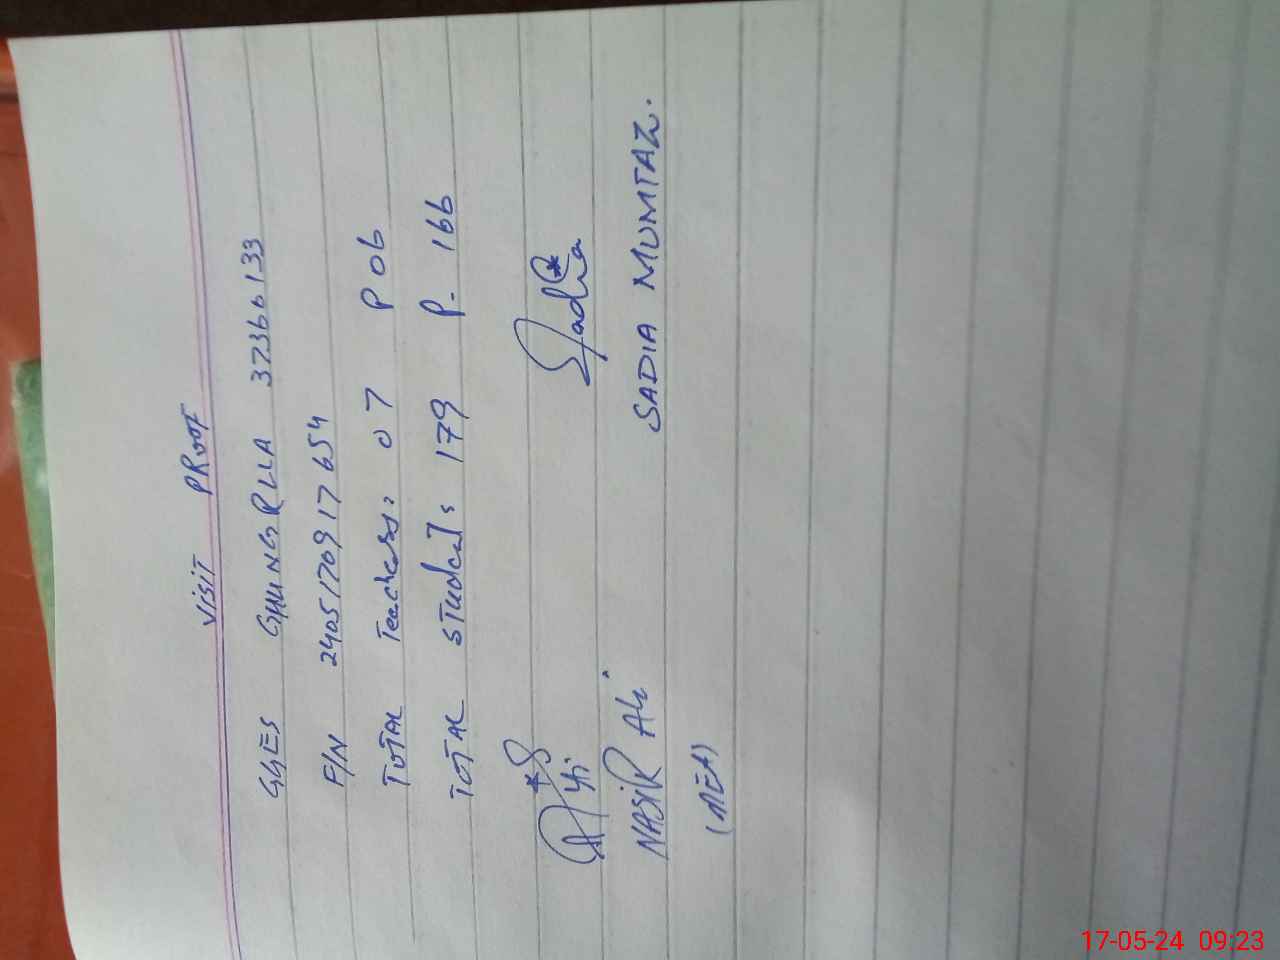 VISIT PROOF
GGES GHUNGRILLA 37366133
F/N 2405170917654
TOTAL Teachers: 07 P 06
TOTAL Students 179 P- 166
Sadia
NASIR Ali SADIA MUMTAZ.
(MEA)
17-05-24 09:23